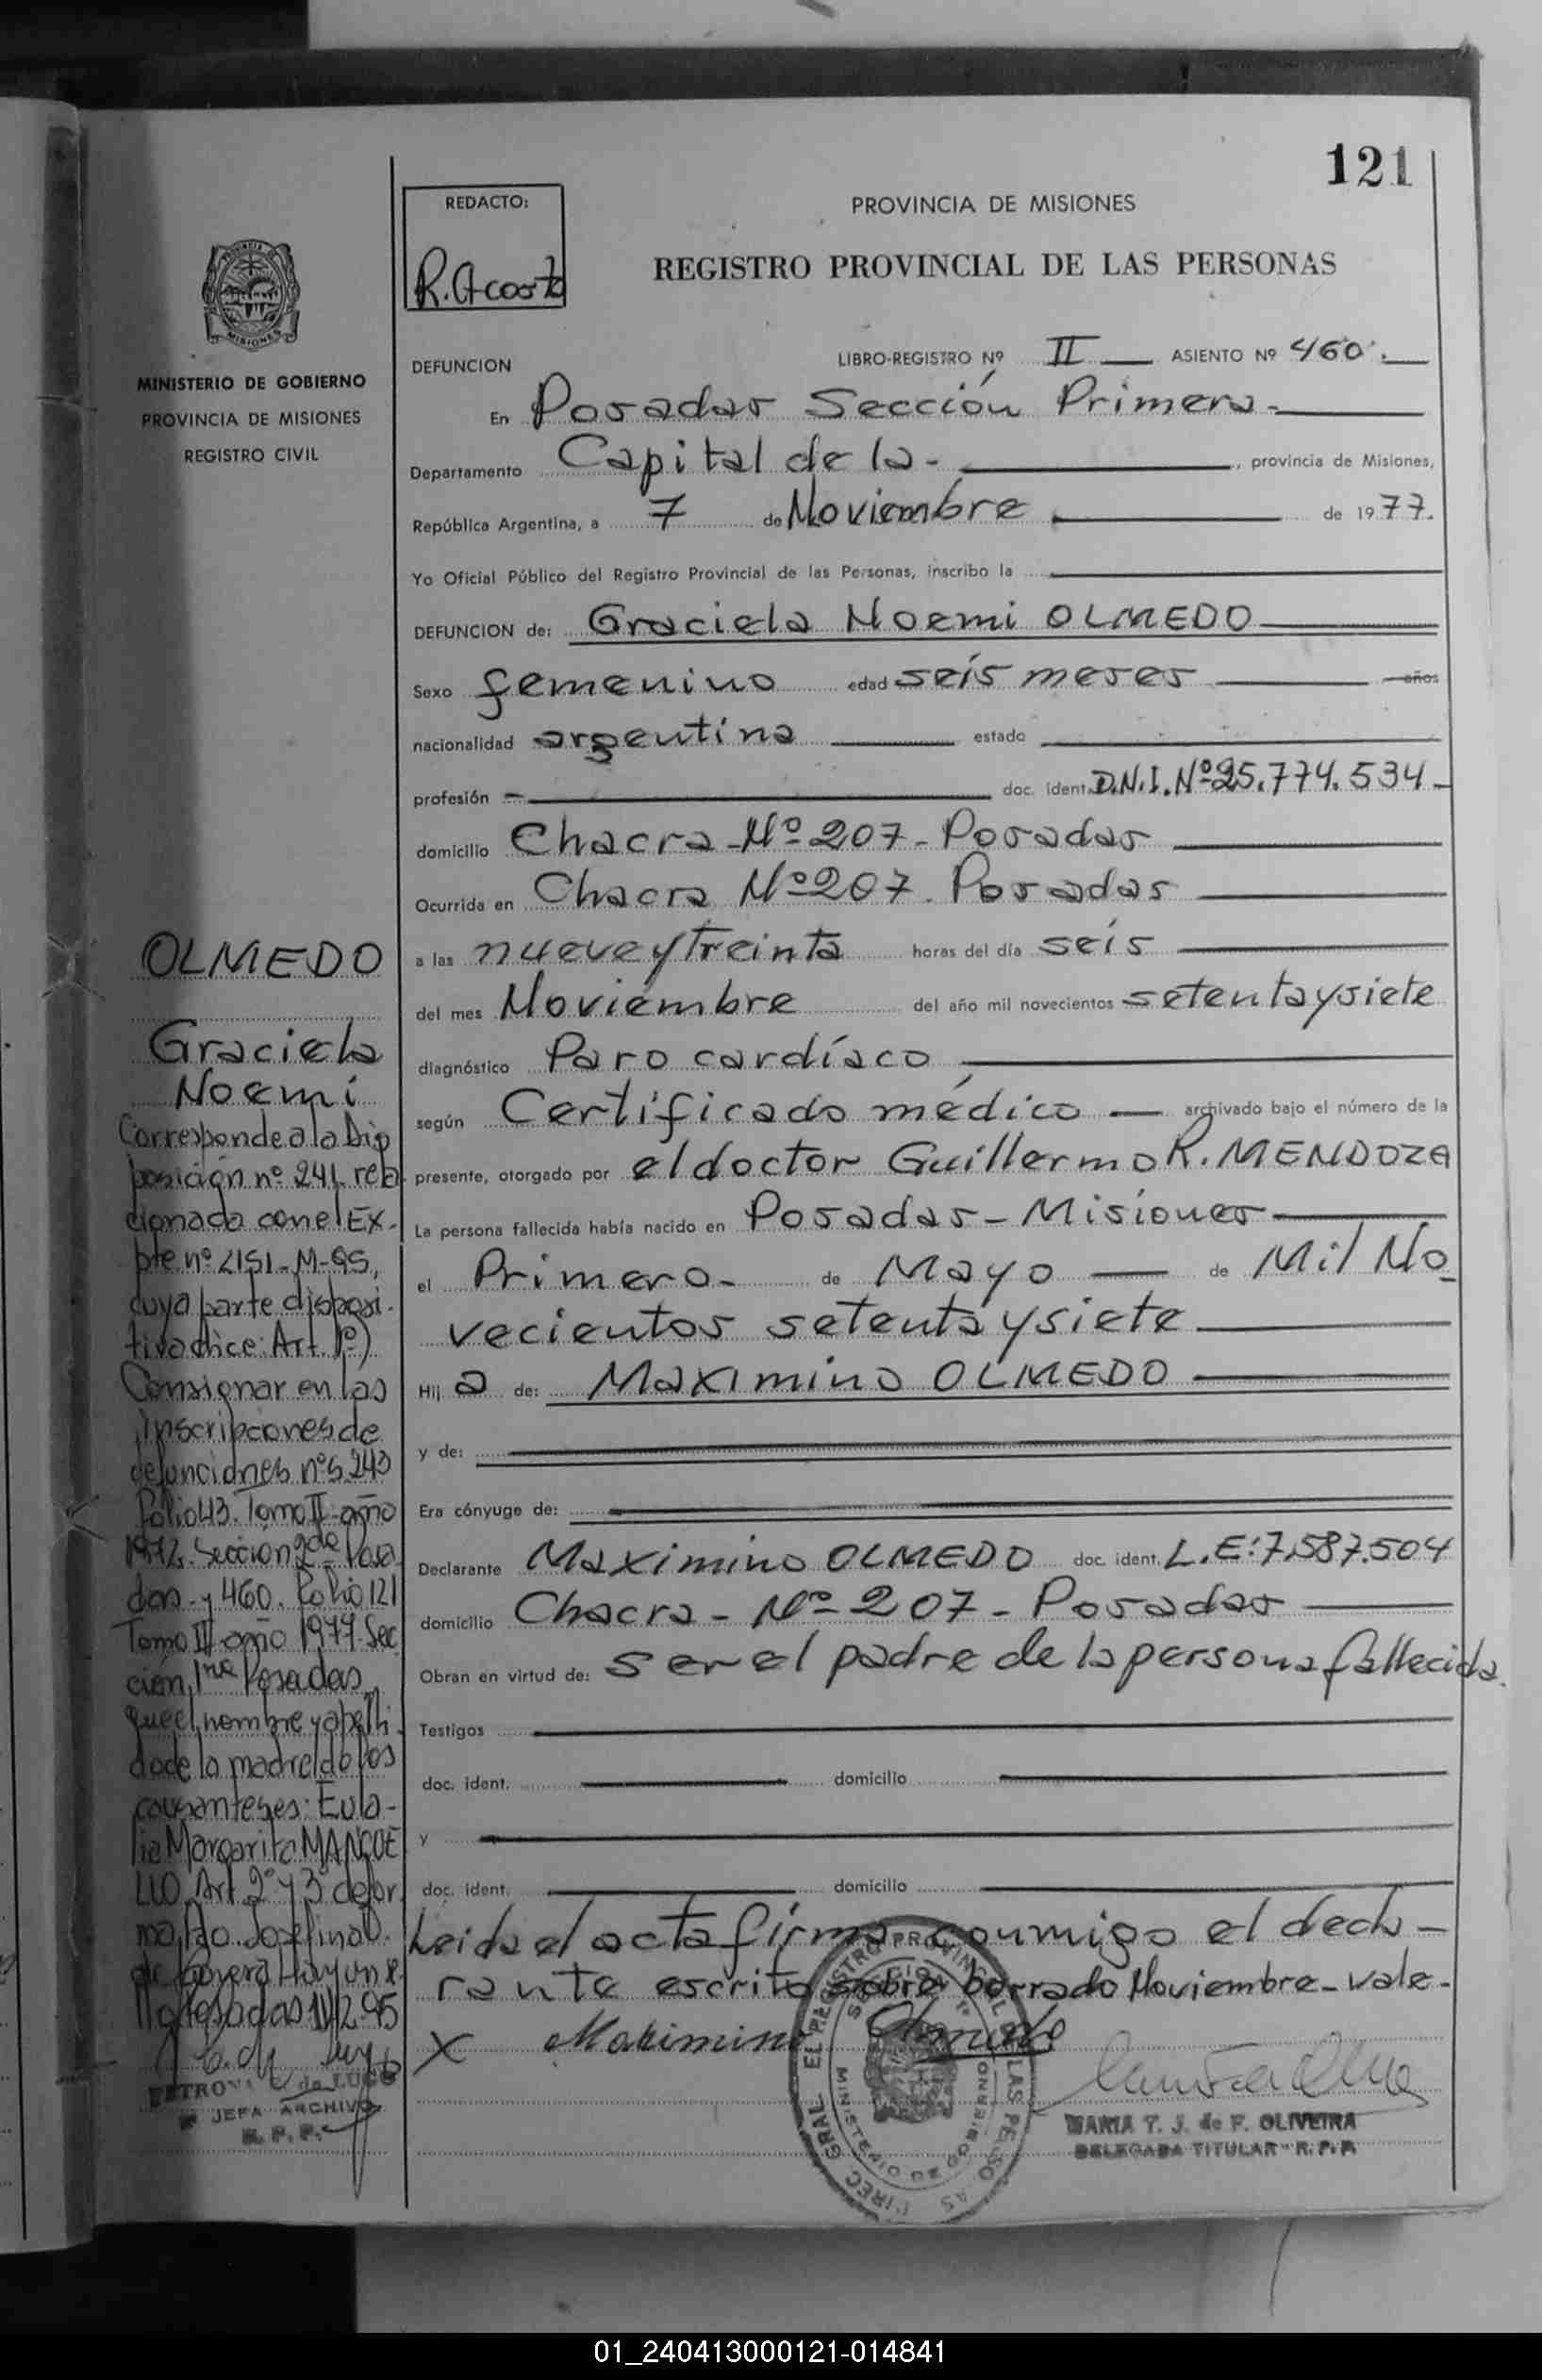 121
REDACTO:
R. Acosta
PROVINCIA DE MISIONES
REGISTRO PROVINCIAL DE LAS PERSONAS
MISIONES
MINISTERIO DE GOBIERNO
PROVINCIA DE MISIONES
REGISTRO CIVIL
DEFUNCION LIBRO-REGISTRO Nº II ASIENTO Nº 460.
En Posadas Sección Primera-
Departamento Capital de la- , provincia de Misiones,
República Argentina, a 7 de Noviembre de 1977.
Yo Oficial Público del Registro Provincial de las Personas, inscribo la
DEFUNCION de: Graciela Noemi OLMEDO
Sexo femenino edad seis meses años
nacionalidad argentina estado
profesión - doc. ident. D.N.I. Nº 25.774.534-
domicilio Chacra-Nº 207-Posadas
Ocurrida en Chacra Nº 207. Posadas
a las nueve y treinta horas del día seis
del mes Noviembre del año mil novecientos setenta y siete
diagnóstico Paro cardíaco
según Certificado médico archivado bajo el número de la
presente, otorgado por el doctor Guillermo R. MENDOZA
La persona fallecida había nacido en Posadas-Misiones
el Primero- de Mayo de Mil No-
vecientos setenta y siete
Hij a de: Maximino OLMEDO
y de:
Era cónyuge de:
Declarante Maximino OLMEDO doc. ident. L.E: 7.587.504
domicilio Chacra-Nº 207-Posadas
Obran en virtud de: ser el padre de la persona fallecida.
Testigos
doc. ident. domicilio
y
doc. ident. domicilio
Leida el acta firma conmigo el decla-
rante escrito sobre borrado Noviembre-vale-
X Maximino Olmedo
MARIA T. J. de F. OLIVEIRA
DELEGADA TITULAR - R. P. P.
OLMEDO
Graciela
Noemi
Corresponde a la Dis
posición nº 241 rela
cionada con el Ex-
pte nº 2151-M-95,
cuya parte disposi-
tiva dice: Art. 1º)
Consignar en las
inscripciones de
defunciones nºs 243
Folio 43. Tomo II año
1972. Sección 2da Posa
das- y 460. Folio 121
Tomo II año 1977. Sec
ción 1ra Posadas
que el nombre y apelli-
do de la madre de los
causantes es: Eula-
lia Margarita MANCUE
LLO. Art. 2º y 3º de for
ma. Fdo. Josefina
Posadas
PETRONA de LUGO
JEFA ARCHIVO
R. P. P.
01_240413000121-014841